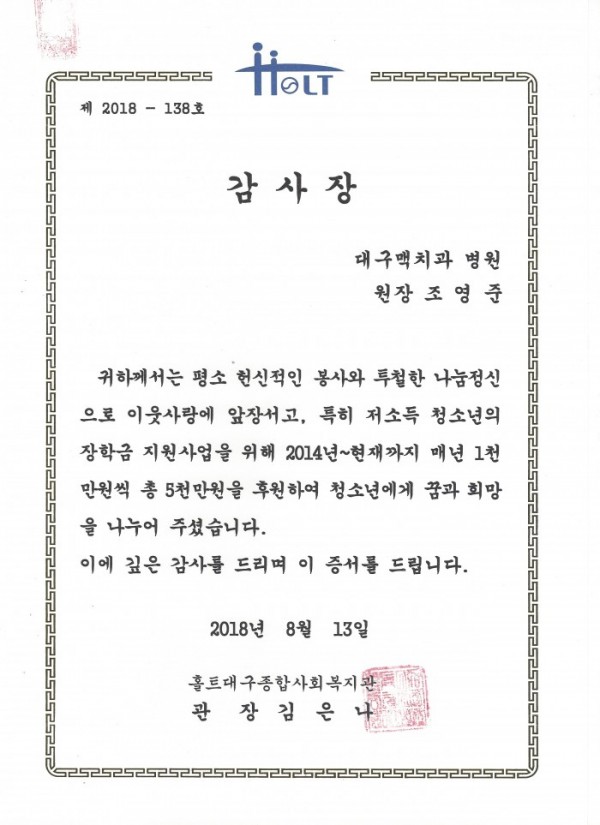 HOLT
제 2018 - 138호
감 사 장
대구맥치과 병원
원장 조 영 준
귀하께서는 평소 헌신적인 봉사와 투철한 나눔정신
으로 이웃사랑에 앞장서고, 특히 저소득 청소년의
장학금 지원사업을 위해 2014년~현재까지 매년 1천
만원씩 총 5천만원을 후원하여 청소년에게 꿈과 희망
을 나누어 주셨습니다.
이에 깊은 감사를 드리며 이 증서를 드립니다.
2018년 8월 13일
홀트대구종합사회복지관
관 장 김 은 나